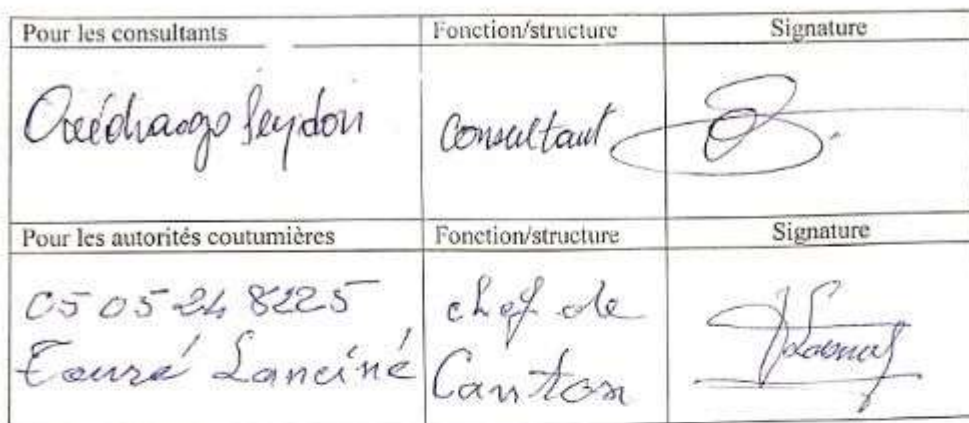 Pour les consultants Fonction/structure Signature
Ouédraogo Seydou consultant
Pour les autorités coutumières Fonction/structure Signature
05 05 24 8225 chef de
Touré Lanciné Canton